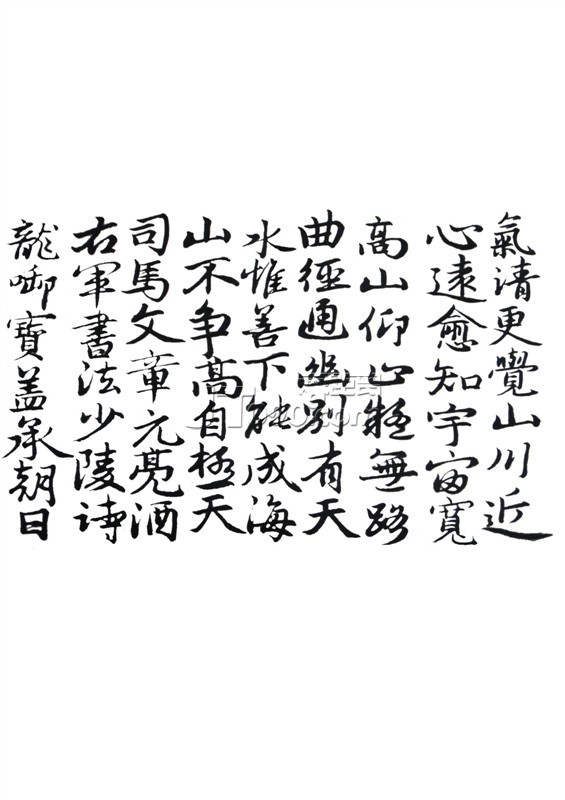 氣清更覺山川近
心遠愈知宇宙寬
高山仰止疑無路
曲徑通幽別有天
水惟善下能成海
山不争高自極天
司馬文章元亮酒
右軍書法少陵詩
龍啣寶盖承朝日